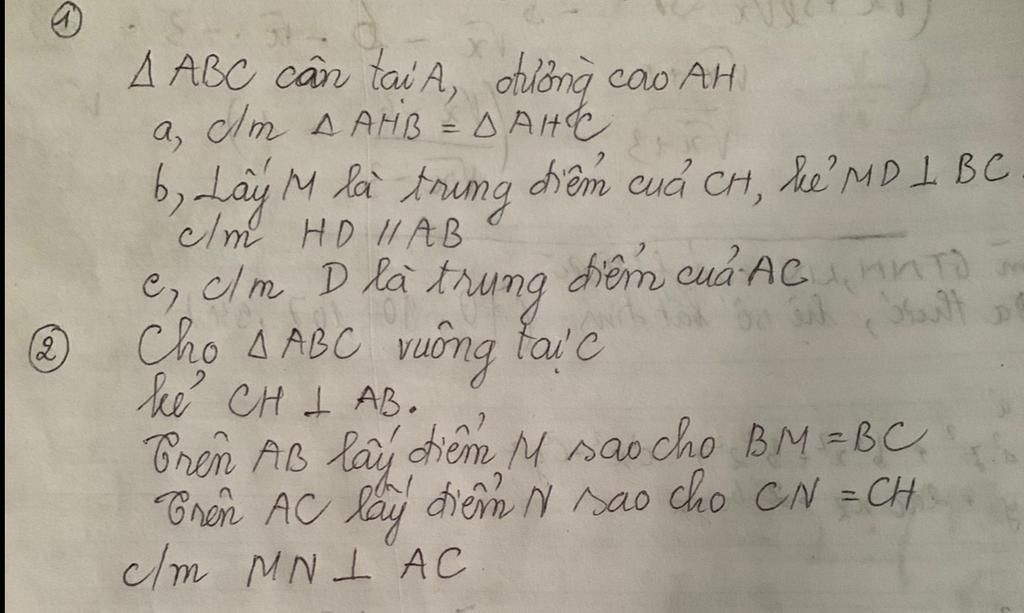 ①
Δ ABC cân tại A, đường cao AH
a, c/m Δ AHB = Δ AHC
b, Lấy M là trung điểm của CH, kẻ MD ⊥ BC.
c/m HD // AB
c, c/m D là trung điểm của AC
② Cho Δ ABC vuông tại C
kẻ CH ⊥ AB.
Trên AB lấy điểm M sao cho BM = BC
Trên AC lấy điểm N sao cho CN = CH
c/m MN ⊥ AC